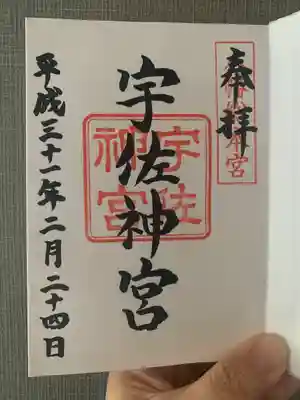 奉拝
宇佐神宮
宇佐
神宮
平成三十一年二月二十四日